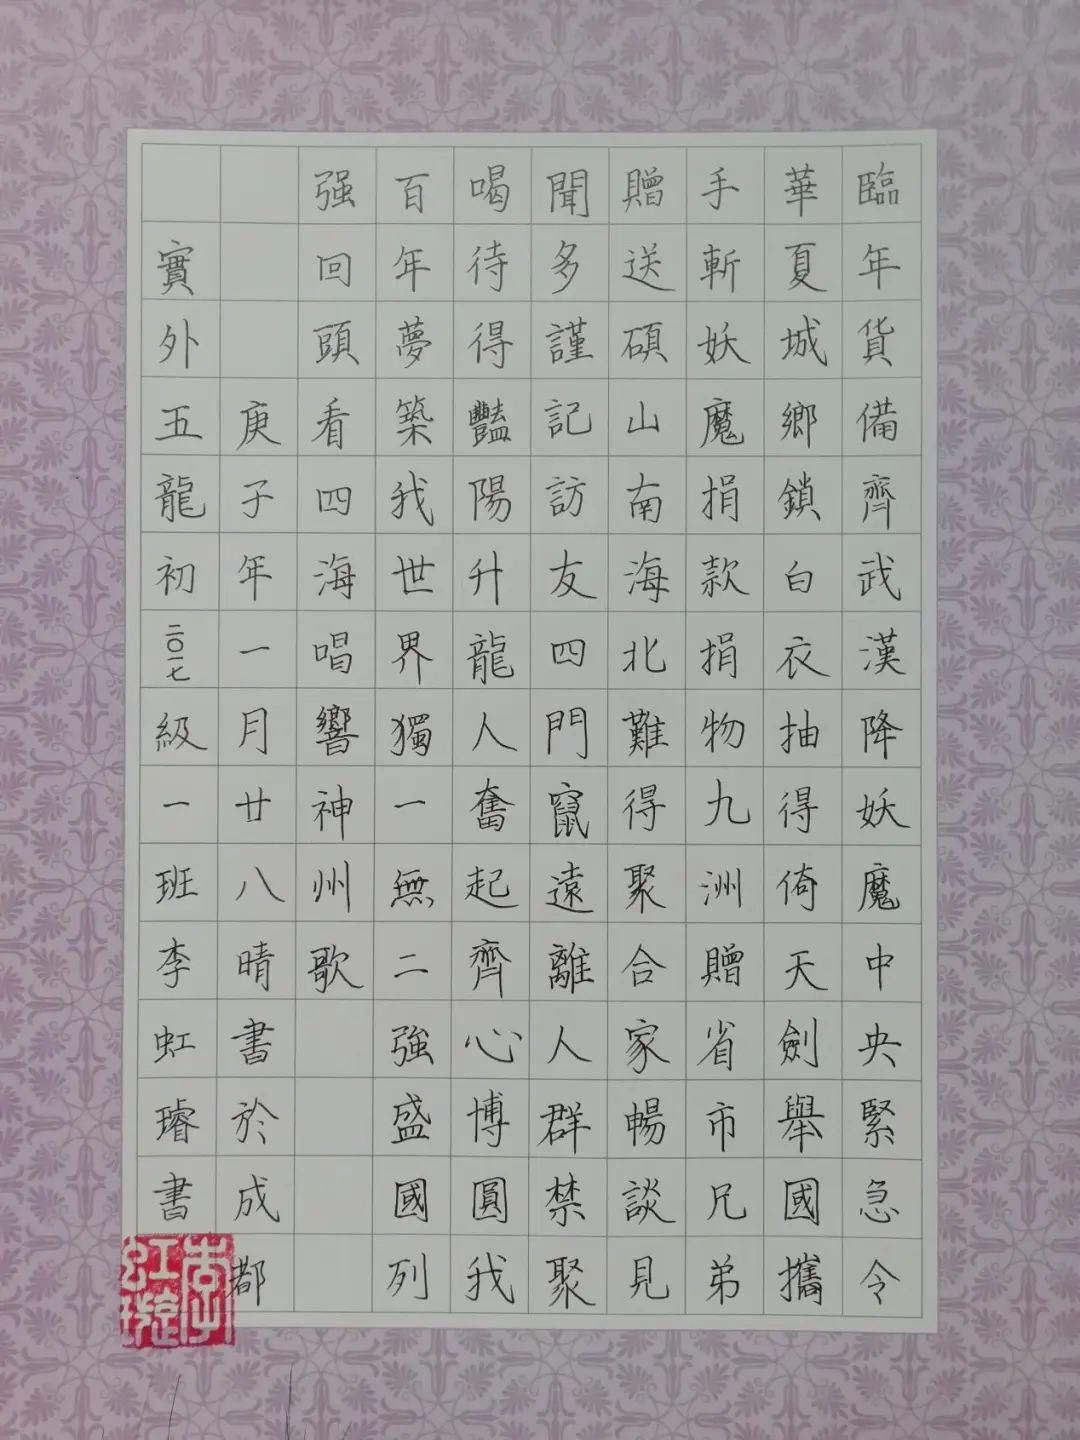 臨年貨備齊武漢降妖魔中央緊急令
華夏城鄉鎖白衣抽得倚天劍舉國攜
手斬妖魔捐款捐物九洲贈省市兄弟
贈送碩山南海北難得聚合家暢談見
聞多謹記訪友四門竄遠離人群禁聚
喝待得豔陽升龍人奮起齊心博圓我
百年夢築我世界獨一無二強盛國列
强回頭看四海唱響神州歌
庚子年一月廿八晴書於成都
實外五龍初二〇一七級一班李虹璿書
李虹璿